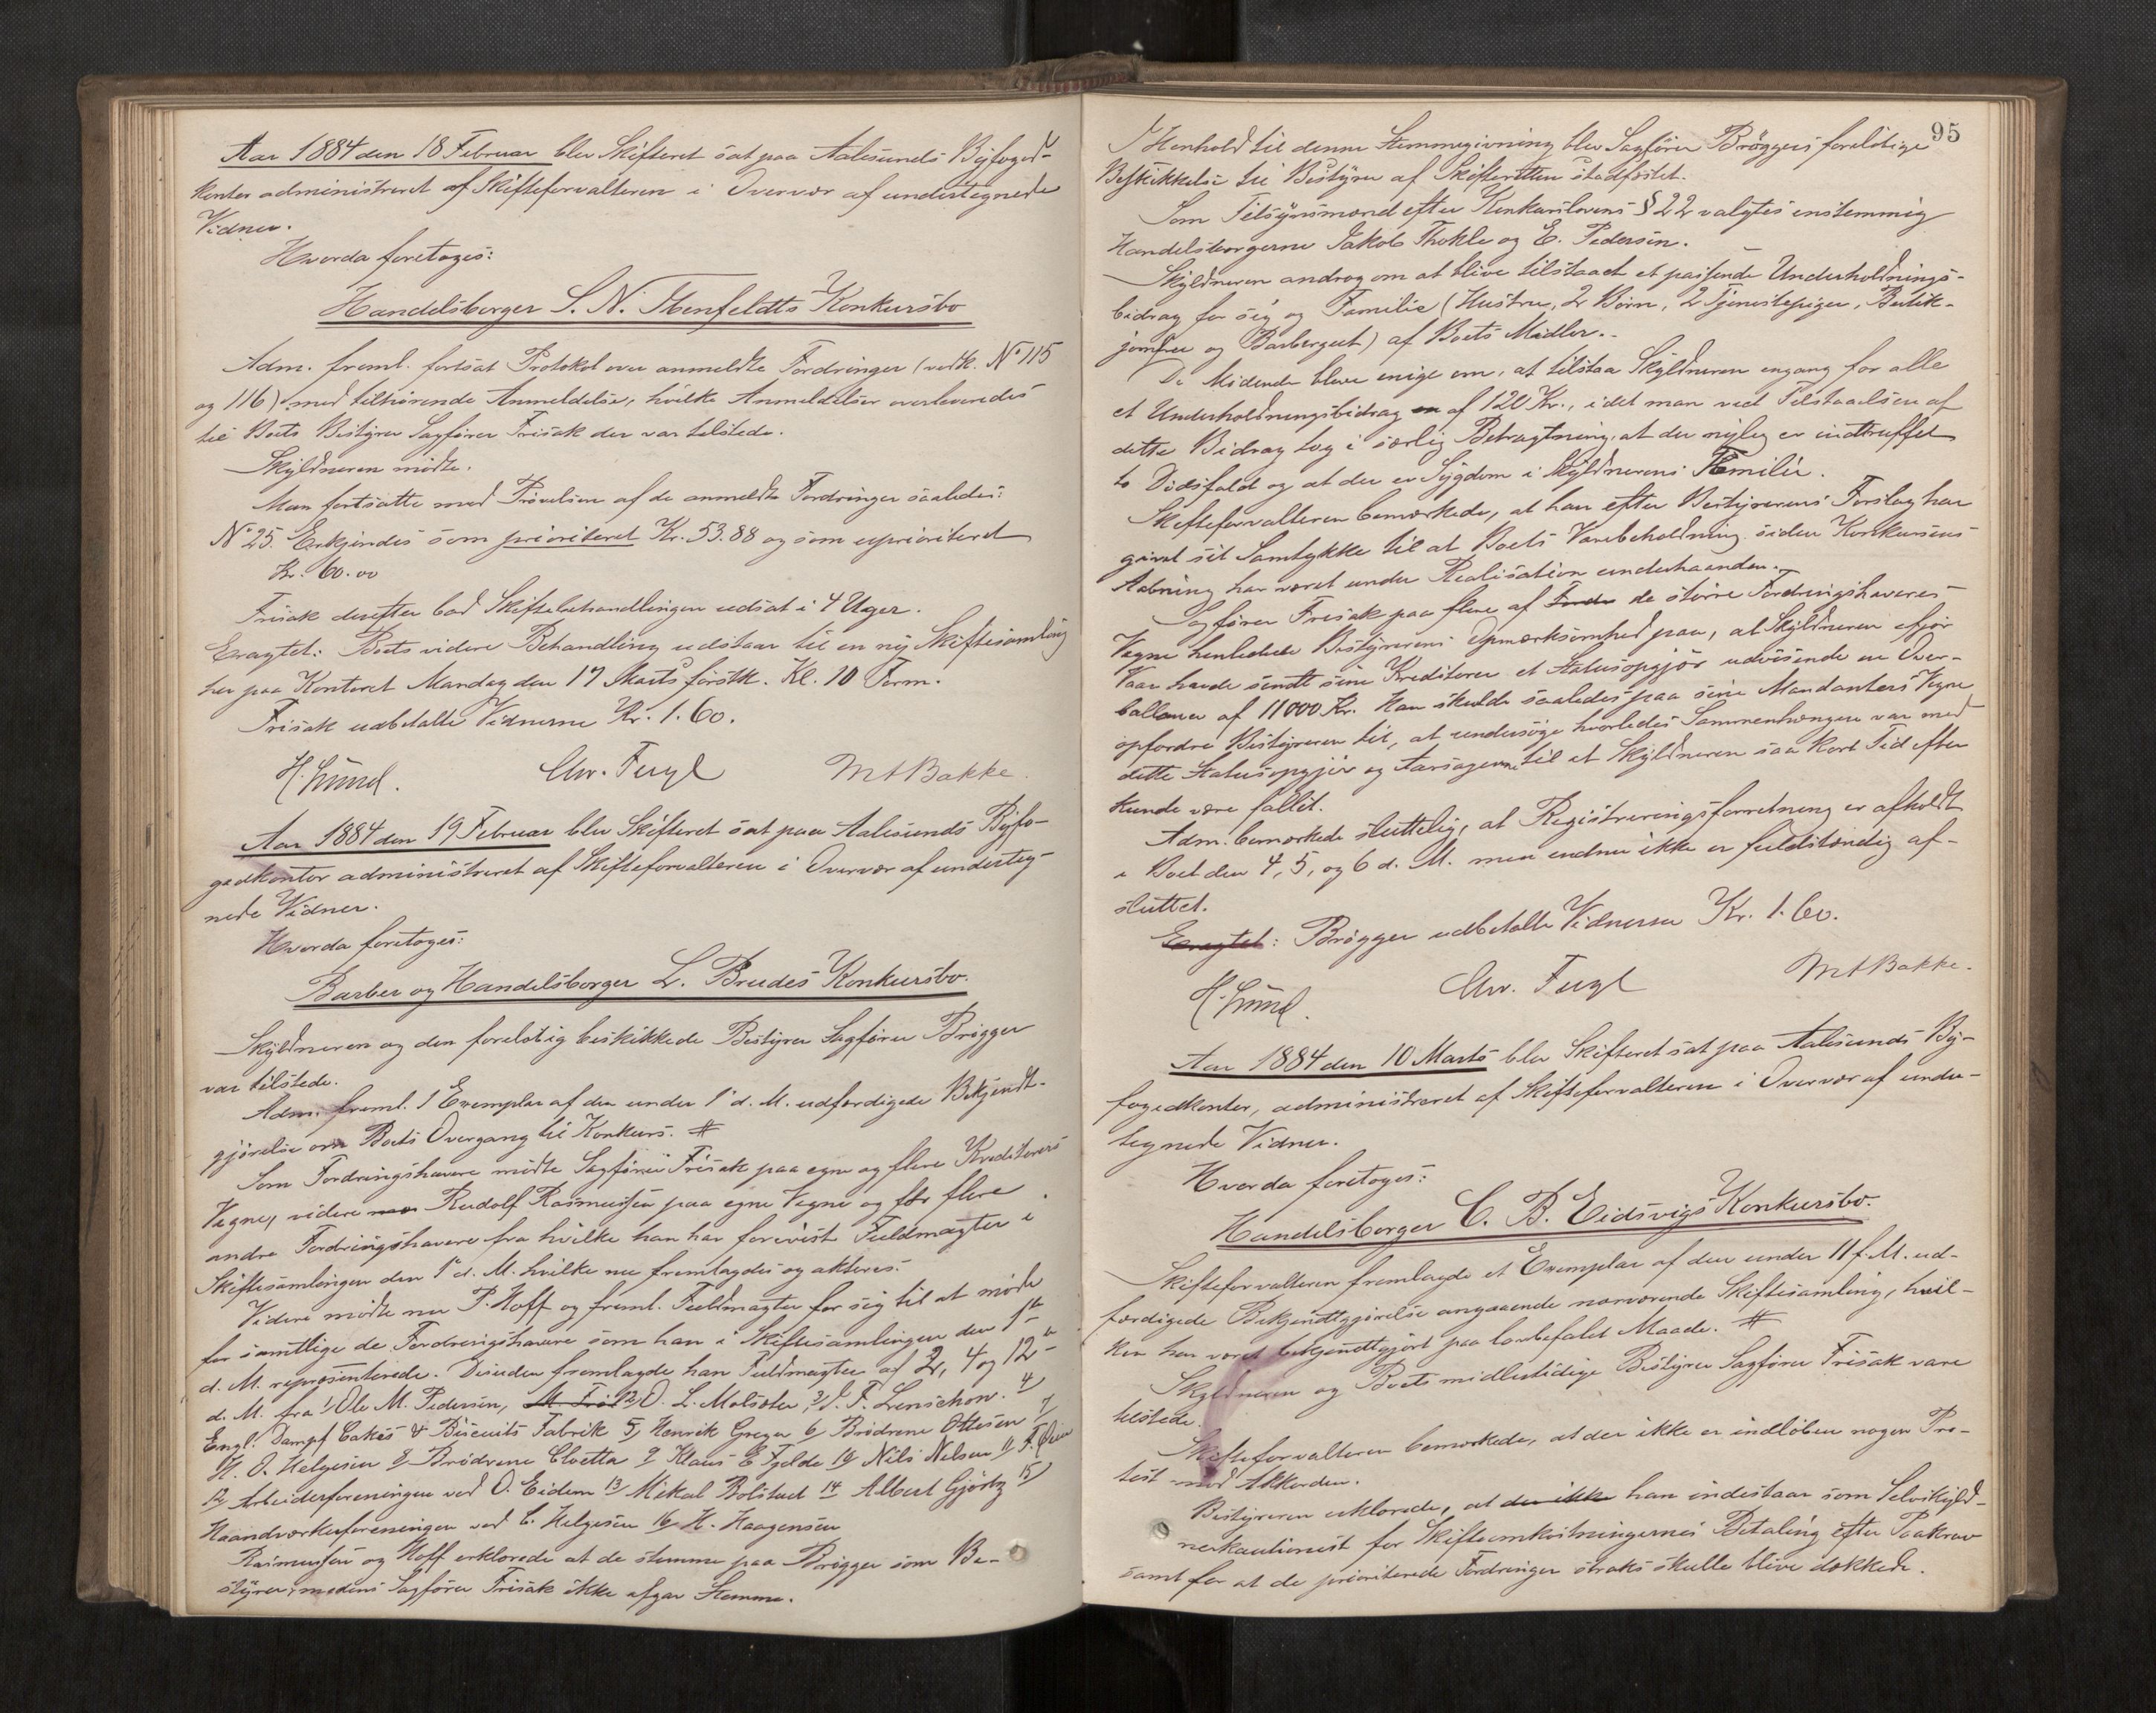 Aar 1884 den 18 Februar blev Skifteret sat paa Aalesunds Byfoged-
kontor administreret af Skifteforvalteren i Overvær af undertegnede
Vidner.
Hvorda foretoges:
Handelsborger S. N. Konkursbo
Adm. freml. fortsat Protokol over anmeldte Fordringer (vedk. No 115
og 116) med tilhørende Anmeldelse, hvilke Anmeldelser overleveredes
til Boets Bestyrer Sagfører Frisak der var tilstede.
Skyldneren mødte.
Man fortsatte med Prøvelsen af de anmeldte Fordringer saaledes:
No 25. Erkjendes som prioriteret Kr. 53.88 og som uprioriteret
Kr. 60.00
Frisak derefter bad Skiftebehandlingen udsat i 4 Uger.
Eragtet: Boets videre Behandling udstaar til en ny Skiftesamling
her paa Kontoret Mandag den 17 Marts førstk. Kl. 10 Form.
Frisak udbetalte Vidnerne Kr. 1.60.
Chr. Fugl M A Bakke.
Aar 1884 den 19 Februar blev Skifteret sat paa Aalesunds Byfo-
gedkontor administreret af Skifteforvalteren i Overvær af underteg-
nede Vidner.
Hvorda foretoges:
Barber og Handelsborger L. Brudes Konkursbo.
Skyldneren og den foreløbig beskikkede Bestyrer Sagfører Brøgger
var tilstede.
Adm. freml. 1 Exemplar af den under 1' d. M. udfærdigede Bekjendt-
gjørelse om Boets Overgang til Konkurs. #
Som Fordringshavere mødte Sagfører Frisak paa egne og flere Kreditorers
Vegne, videre Rudolf Rasmussen paa egne Vegne og for flere
andre Fordringshavere fra hvilke han har forevist Fuldmagter i
Skiftesamlingen den 1' d. M. hvilke nu fremlagdes og akteres.
Videre mødte nu P. Hoff og freml. Fuldmagter for sig til at møde
for samtlige de Fordringshavere som han i Skiftesamlingen den 1ste
d. M. repræsenterede. Desuden fremlagde han Fuldmagter af 2, 4 og 12te
d. M. fra 1 Ole M. Pedersen, 2, O. L. Molsæter, 3, J. F. Lenschow. 4,
Engl. Dampf Cakes & Biscuits Fabrik 5, Henrik Greger 6, Brødrene Ottesen 7,
H. O. Helgesen 8 Brødrene Cloetta 9 Klaus E Fjelde 10 Nils Nelsen 11
12 Arbeiderforeningen ved O. Eidem 13 Mikal Bolstad 14 Albert Gjørtz 15,
Haandværkerforeningen ved C. Helgesen 16, H. Haagensen
Rasmussen og Hoff erklærede at de stemme paa Brøgger som Be-
styrer, medens Sagfører Frisak ikke afgav Stemme.
95
I Henhold til denne Stemmegivning blev Sagfører Brøggers foreløbige
Beskikkelse til Bestyrer af Skifteretten stadfæstet.
Som Tilsynsmænd efter Konkurslovens § 22 valgtes enstemmig
Handelsborgerne Jakob Thokle og E. Pedersen.
Skyldneren androg om at blive tilstaaet et passende Underholdnings-
bidrag for sig og Familie (Hustru, 2 Børn, 2 Tjenestepiger, Butik-
jomfru og Barbergut) af Boets Midler.
De Mødende bleve enige om, at tilstaa Skyldneren engang for alle
et Underholdningsbidrag af 120 Kr., idet man ved Tilstaaelsen af
dette Bidrag tog i særlig Betragtning, at der nylig er indtruffet
to Dødsfald og at der er Sygdom i Skyldnerens Familie.
Skifteforvalteren bemærkede, at han efter Bestyrerens Forslag har
givet sit Samtykke til at Boets Varebeholdning siden Konkursens
Aabning har været under Realisation underhaanden.
Sagfører Frisak paa flere af de større Fordringshaveres
Vegne henledede Bestyrerens Opmærksomhed paa, at Skyldneren ifjor
Vaar havde sendt sine Kreditorer et Statusopgjør udvisende en Over-
ballance af 11000 Kr. Han skulde saaledes paa sine Mandanters Vegne
opfordre Bestyreren til, at undersøge hvorledes Sammenhængen var med
dette Statusopgjør og Aarsagerne til at Skyldneren saa kort Tid efter
kunde være fallit.
Adm. bemærkede sluttelig, at Registreringsforretning er afholdt
i Boet den 4, 5, og 6 d. M. men endnu ikke er fuldstændig af-
sluttet.
Eragtet: Brøgger udbetalte Vidnerne Kr. 1.60.
Chr. Fugl M A Bakke.
Aar 1884 den 10 Marts blev Skifteret sat paa Aalesunds By-
fogedkontor, administreret af Skifteforvalteren i Overvær af under-
tegnede Vidner.
Hvorda foretoges:
Handelsborger C. B. Eidsvigs Konkursbo.
Skifteforvalteren fremlagde et Exemplar af den under 11 f. M. ud-
færdigede Bekjendtgjørelse angaaende nærværende Skiftesamling, hvil-
ken har været bekjendtgjort paa lovbefalet Maade. #
Skyldneren og Boets midlertidige Bestyrer Sagfører Frisak vare
tilstede.
Skifteforvalteren bemærkede, at der ikke er indløben nogen Pro-
test mod Akkorden.
Bestyreren erklærede, at der ikke han indestaar som Selvskyld-
nerkautionist for Skifteomkostningernes Betaling efter Paakrav
samt for at de prioriterede Fordringer straks skulle blive dækkede.